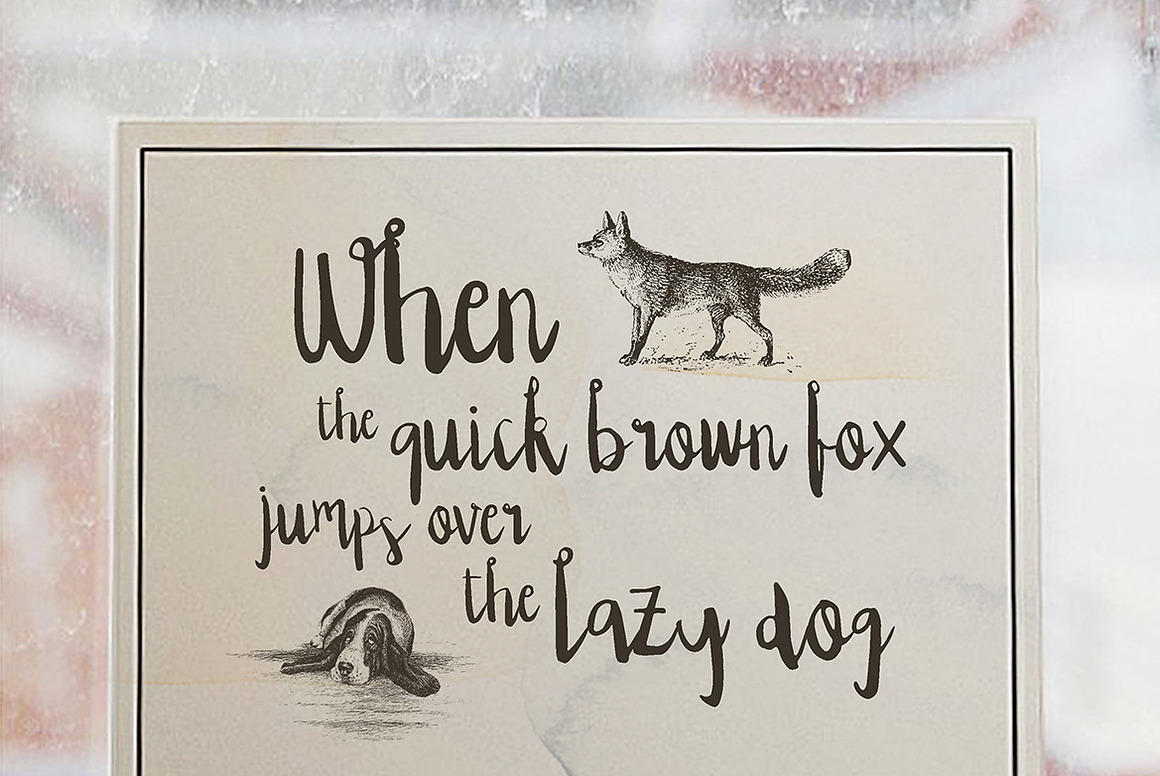 When
the quick brown fox
jumps over
the lazy dog